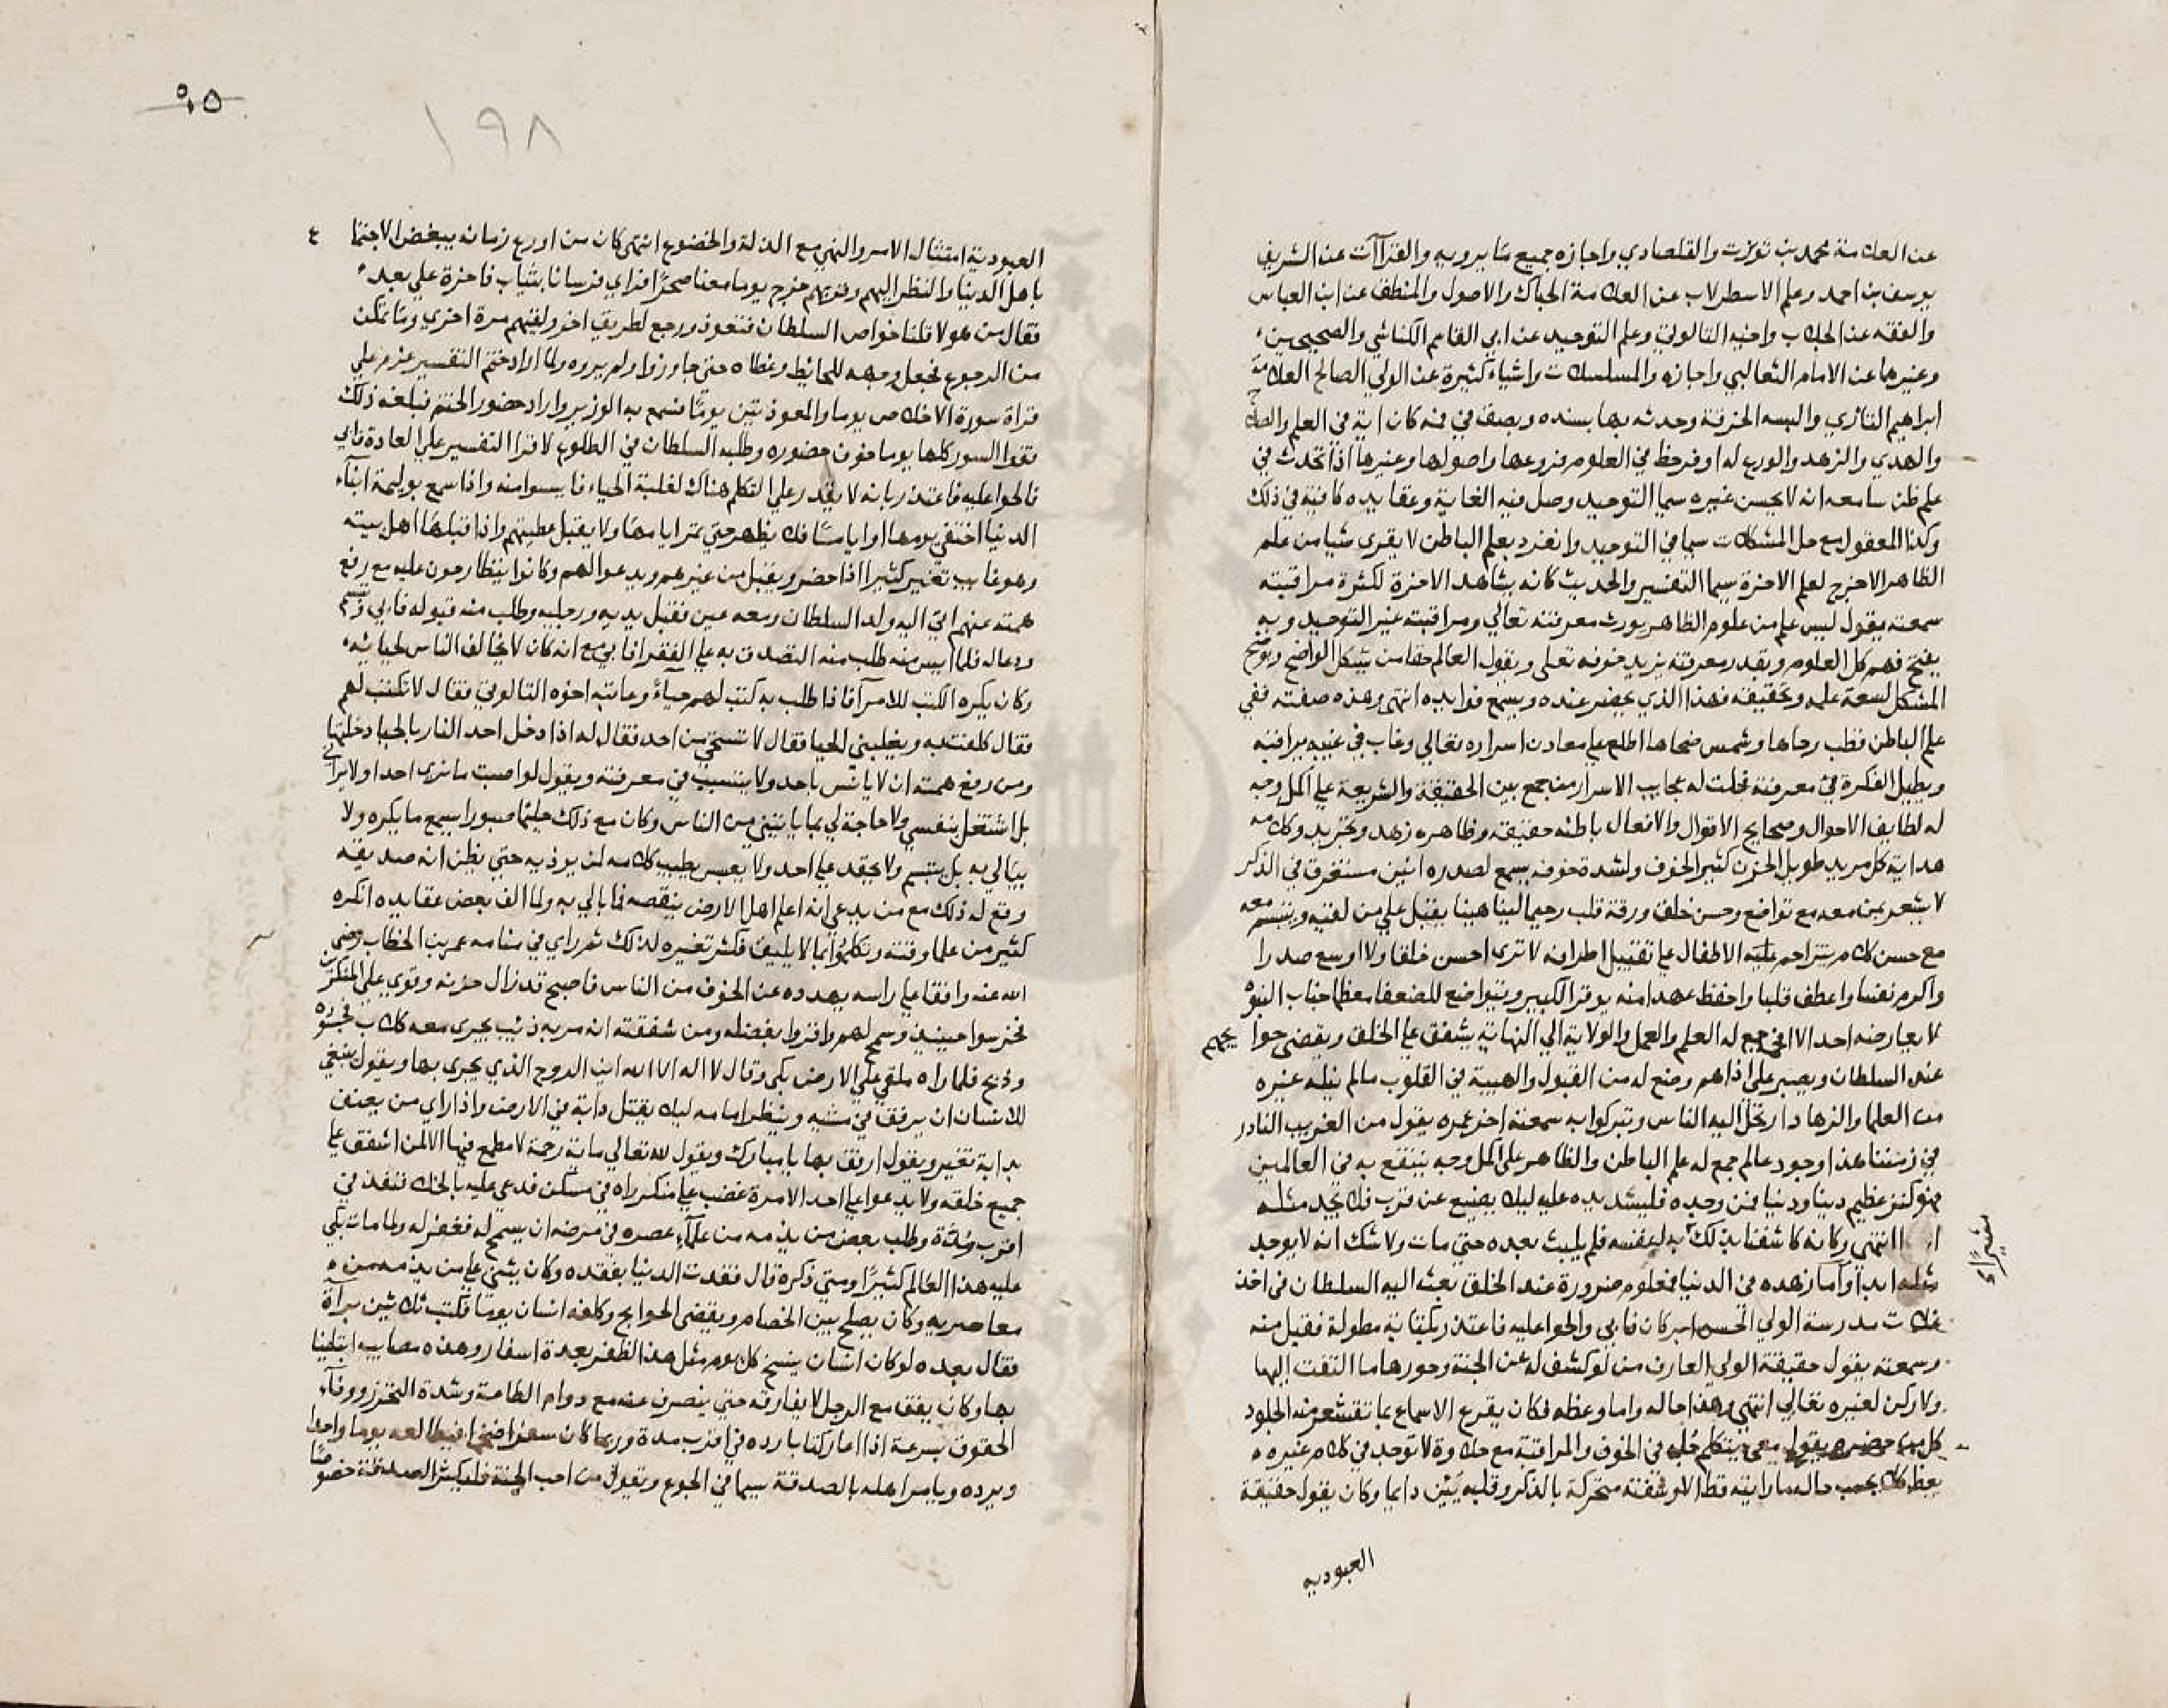 عن العلامة محمد بن تومرت والقلصادي واجازه جميع ما يرويه والقراآت عن الشريف
يوسف بن احمد وعلم الاسطرلاب عن العلامة الحباك والاصول والمنطق عن ابن العباس
والفقه عن الجلاب واخيه التالوتي وعلم التوحيد عن ابي القاسم الكناشي والصحيحين
وغيرهما عن الامام الثعالبي واجازه والمسلسلات واشياء كثيرة عن الولي الصالح العلامة
ابراهيم التازي والبسه الخرقة وحدثه بها بسنده وبصق في فمه كان اية في العلم والصلاح
والهدي والزهد والورع له اوفر حظ في العلوم فروعها واصولها وغيرها اذا تحدث في
علم ظن سامعه انه لا يحسن غيره سيما التوحيد وصل فيه الغاية وعقايده كافية في ذلك
وكذا المعقول مع حل المشكلات سيما في التوحيد وانفرد بعلم الباطن لا يقرى شيا من علم
الظاهر الا خرج لعلم الاخرة سيما التفسير والحديث كانه يشاهد الاخرة لكثرة مراقبته
سمعته يقول ليس علم من علوم الظاهر يورث معرفته تعالي ومراقبته غير التوحيد وبه
يفتح فهم كل العلوم وبقدر معرفته يزيد خوفه تعلى ويقول العالم حقا من يشكل الواضح ويوضح
المشكل لسعة علمه وتحقيقه فهذا الذي يحضر عنده ويسمع فوايده انتهى وهذه صفته ففي
علم الباطن قطب رحاها وشمس ضحاها اطلع على معادن اسراره تعالي وغاب في غيبه يراقبه
ويطيل الفكرة في معرفته فجلت له عجايب الاسرار فجمع بين الحقيقة والشريعة على اكمل وجه
له لطايف الاحوال وصحايح الاقوال والافعال باطنه حقيقته وظاهره زهد وتجريد وكلامه
هداية كل مريد طويل الحزن كثير الخوف ولشدة خوفه يسمع لصدره انين مستغرق في الذكر
لا يشعر بمن معه مع تواضع وحسن خلق ورقة قلب رحيما لينا هينا يقبل على من لقيه ويتبسم معه
مع حسن كلام يتزاحم عليه الاطفال على تقبيل اطرافه لا ترى احسن خلقا ولا اوسع صدرا
واكرم نفسا واعطف قلبا واحفظ عهدا منه يوقر الكبير ويتواضع للضعفا معظما جناب النبوه
لا يعارضه احد الا افحم جمع له العلم والعمل والولاية الي النهاية يشفق على الخلق ويقضي حوا
يجهم
عند السلطان ويصبر على اذاهم وضع له من القبول والهيبة في القلوب مالم ينله غيره
من العلما والزهاد ارتحل اليه الناس وتبركوا به سمعته اخر عمره يقول من الغريب النادر
في زمننا هذا وجود عالم جمع له علم الباطن والظاهر على اكمل وجه ينتفع به في العالمين
فهو كنز عظيم دينا ودنيا فمن وجده فليشد يده عليه ليلا يضيع عن قرب فلا يجد مثله
انتهي وكانه كاشفنا بذلك لنفسه فلم يلبث بعده حتي مات ولا شك انه لا يوجد
مثله ابدا واما زهده في الدنيا فمعلوم ضرورة عند الخلق بعث اليه السلطان في اخذ
غلات مدرسة الولي الحسن ابركان فابى والحوا عليه فاعتذر بكتابة مطولة فقبل منه
وسمعته يقول حقيقة الولي العارف من لو كشف له عن الجنة وحورها ما التفت اليها
ولا ركن لغيره تعالي انتهى وهذا حاله واما وعظه فكان يقرع الاسماع بما تقشعر منه الجلود
كل من حضره يقول معي يتكلم جله في الخوف والمراقبة مع حلاوة لا توجد في كلام غيره
يعظ كلا بحسب حاله ما رايته قط الا وشفته متحركة بالذكر وقلبه يئن دايما وكان يقول حقيقة
العبوديه
٥٩
١٩٨
العبودية امتثال الامر والنهي مع الذلة والخضوع انتهى كان من اورع زمانه يبغض الاجتما
ع
باهل الدنيا والنظر اليهم وقربهم خرج يوما معنا صحرا فراي فرسانا بثياب فاخرة على بعد
فقال من هولا قلنا خواص السلطان فتعوذ ورجع لطريق اخر ولقيهم مرة اخري وما تمكن
من الرجوع فجعل وجهه للحائط وغطاه حتى جاوزوا ولم يروه ولما اراد ختم التفسير عزم على
قراة سورة الاخلاص يوما والمعوذتين يوما فسمع به الوزير واراد حضور الختم فبلغه ذلك
فقرا السور كلها يوما خوف حضوره وطلبه السلطان في الطلوع لاقرا التفسير على العادة فابي
فالحوا عليه فاعتذر بانه لا يقدر على التكلم هناك لغلبة الحياء فايسوا منه واذا سمع بوليمة ابناء
الدنيا اختفي يومها او اياما فلا يظهر حتي تمر ايامها ولا يقبل عطيتهم واذا قبلها اهل بيته
وهو غايب تغير كثيرا اذا حضر ويقبل من غيرهم ويدعو الهم وكانوا يتطارحون عليه مع رفع
همته عنهم اتى اليه ولد السلطان ومعه عين فقبل يديه ورجليه وطلب منه قبوله فابي وتبسم
ودعا له فلما ايس منه طلب منه التصدق به على الفقرا فابي مع انه كان لا يخالف الناس لحيائه
وكان يكره الكتب للامرآ فاذا طلب به كتب لهم حياءً وعاتبه اخوه التالوتي فقال لا تكتب لهم
فقال كلفت به ويغلبني الحيا فقال لا تستحي من احد فقال له اذا دخل احد النار بالحيا دخلتها
ومن رفع همته ان لا يانس باحد ولا يتسبب في معرفته ويقول لو اصبت ما نرى احدا ولا يراني
بل اشتغل بنفسي ولا حاجة لي بما ياتيني من الناس وكان مع ذلك حليما صبورا يسمع ما يكره ولا
يبالي به بل يتبسم ولا يحقد على احد ولا يعبس يطيب كلامه لمن يوذيه حتي يظن انه صديقه
وقع له ذلك مع من يدعي انه اعلم اهل الارض ينقصه فما بالي به ولما الف بعض عقايده انكره
كثير من علما وقته وتكلموا بما لا يليق فكثر تغيره لذلك ثم راي في منامه عمر بن الخطاب رضي
الله عنه واقفا على راسه يهدده عن الخوف من الناس فاصبح قد زال حزنه وقوي على المنكرين
فخرسوا حينئذ وسمح لهم واقروا بفضله ومن شفقته انه مر به ذئب يجرى معه كلاب فحبسوه
وذبح فلما راه ملقي على الارض بكى وقال لا اله الا الله اين الروح الذي يجرى بها ويقول ينبغي
للانسان ان يرفق في مشيه وينظر امامه ليلا يقتل دابة في الارض واذا راي من يعنف
بدابة تغير ويقول ارفق بها يا مبارك ويقول لله تعالي ماية رحمة لا مطمع فيها الا لمن اشفق على
جميع خلقه ولا يدعوا على احد الا مرة غضب على منكر راه في مسكن فدعى عليه بالخلا فنفذ في
اقرب مدة وطلب بعض من يذمه من علماء عصره في مرضه ان يسمح له فغفر له ولما مات بكى
عليه هذا العالم كثيرا ومتى ذكره قال فقدت الدنيا بفقده وكان يثني على من يذمه من
معاصريه وكان يصلح بين الخصام ويقضي الحوايج وكلفه انسان يوما فكتب ثلاثين برآة
فقال بعده لو كان انسان ينسخ كل يوم مثل هذا لظفر بعدة اسفار وهذه مصايب ابتلينا
بها وكان يقف مع الرجل لا يفارقه حتي ينصرف عنه مع دوام الطاعة وشدة التحرز ووفاء
الحقوق بسرعة اذا اعار كتابا رده في اقرب مدة وربما كان سفرا ضخما فيطالعه يوما واحدا
ويرده ويامر اهله بالصدقة سيما في الجوع ويقول من احب الجنة فليكثر الصدقة خصوصا